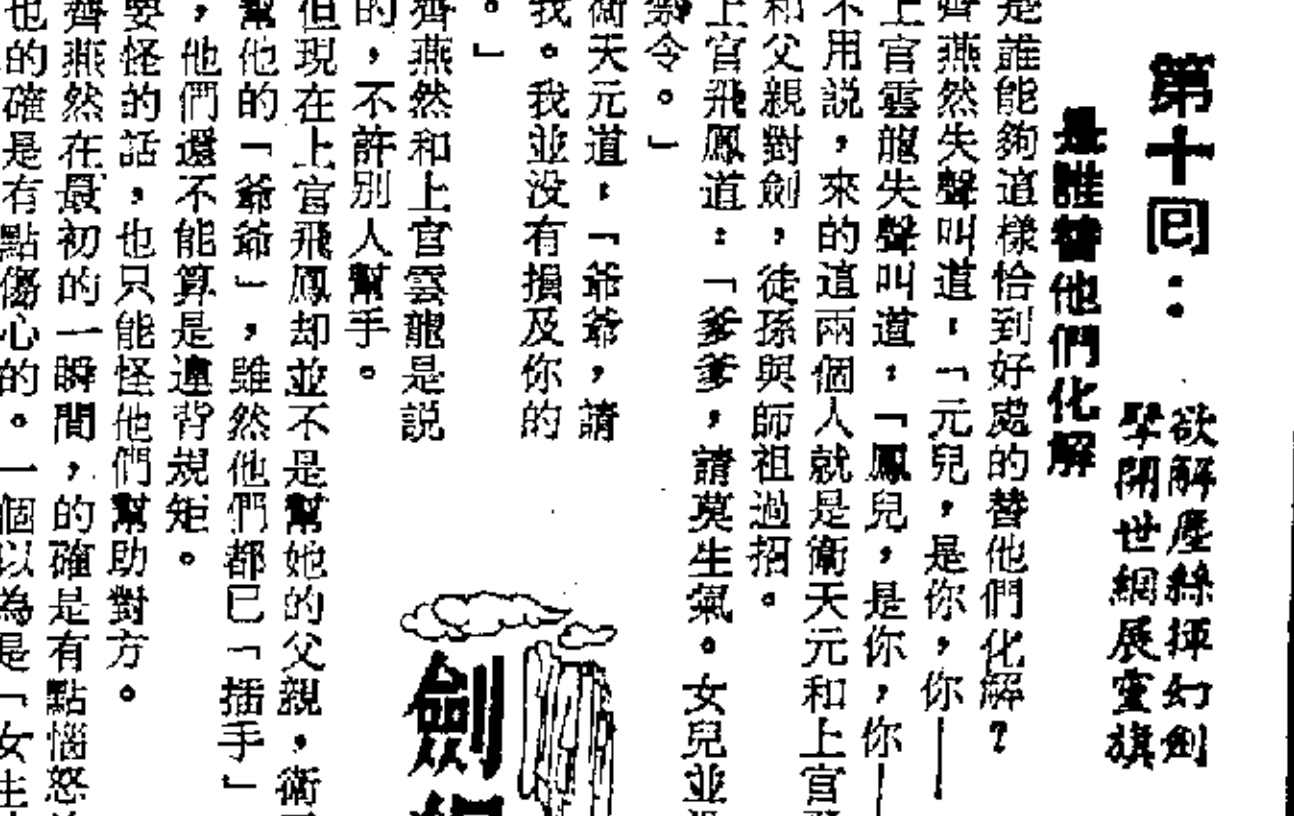 第十回：
欲解塵絲揮幻劍
擘開世網展靈旗
是誰替他們化解
是誰能夠這樣恰到好處的替他們化解？
齊燕然失聲叫道：「元兒，是你，你——
上官雲龍失聲叫道：「鳳兒，是你，你——
不用説，來的這兩個人就是衛天元和上官
和父親對劍，徒孫與師祖過招。
上官飛鳳道：「爹爹，請莫生氣。女兒並
禁令。」
衛天元道：「爺爺，請
我。我並没有損及你的
。」
齊燕然和上官雲龍是説
的，不許别人幫手。
但現在上官飛鳳却並不是幫她的父親，衛
幫他的「爺爺」，雖然他們都已「插手」
，他們還不能算是違背規矩。
要怪的話，也只能怪他們幫助對方。
齊燕然在最初的一瞬間，的確是有點惱怒
也的確是有點傷心的。一個以為是「女生
劍